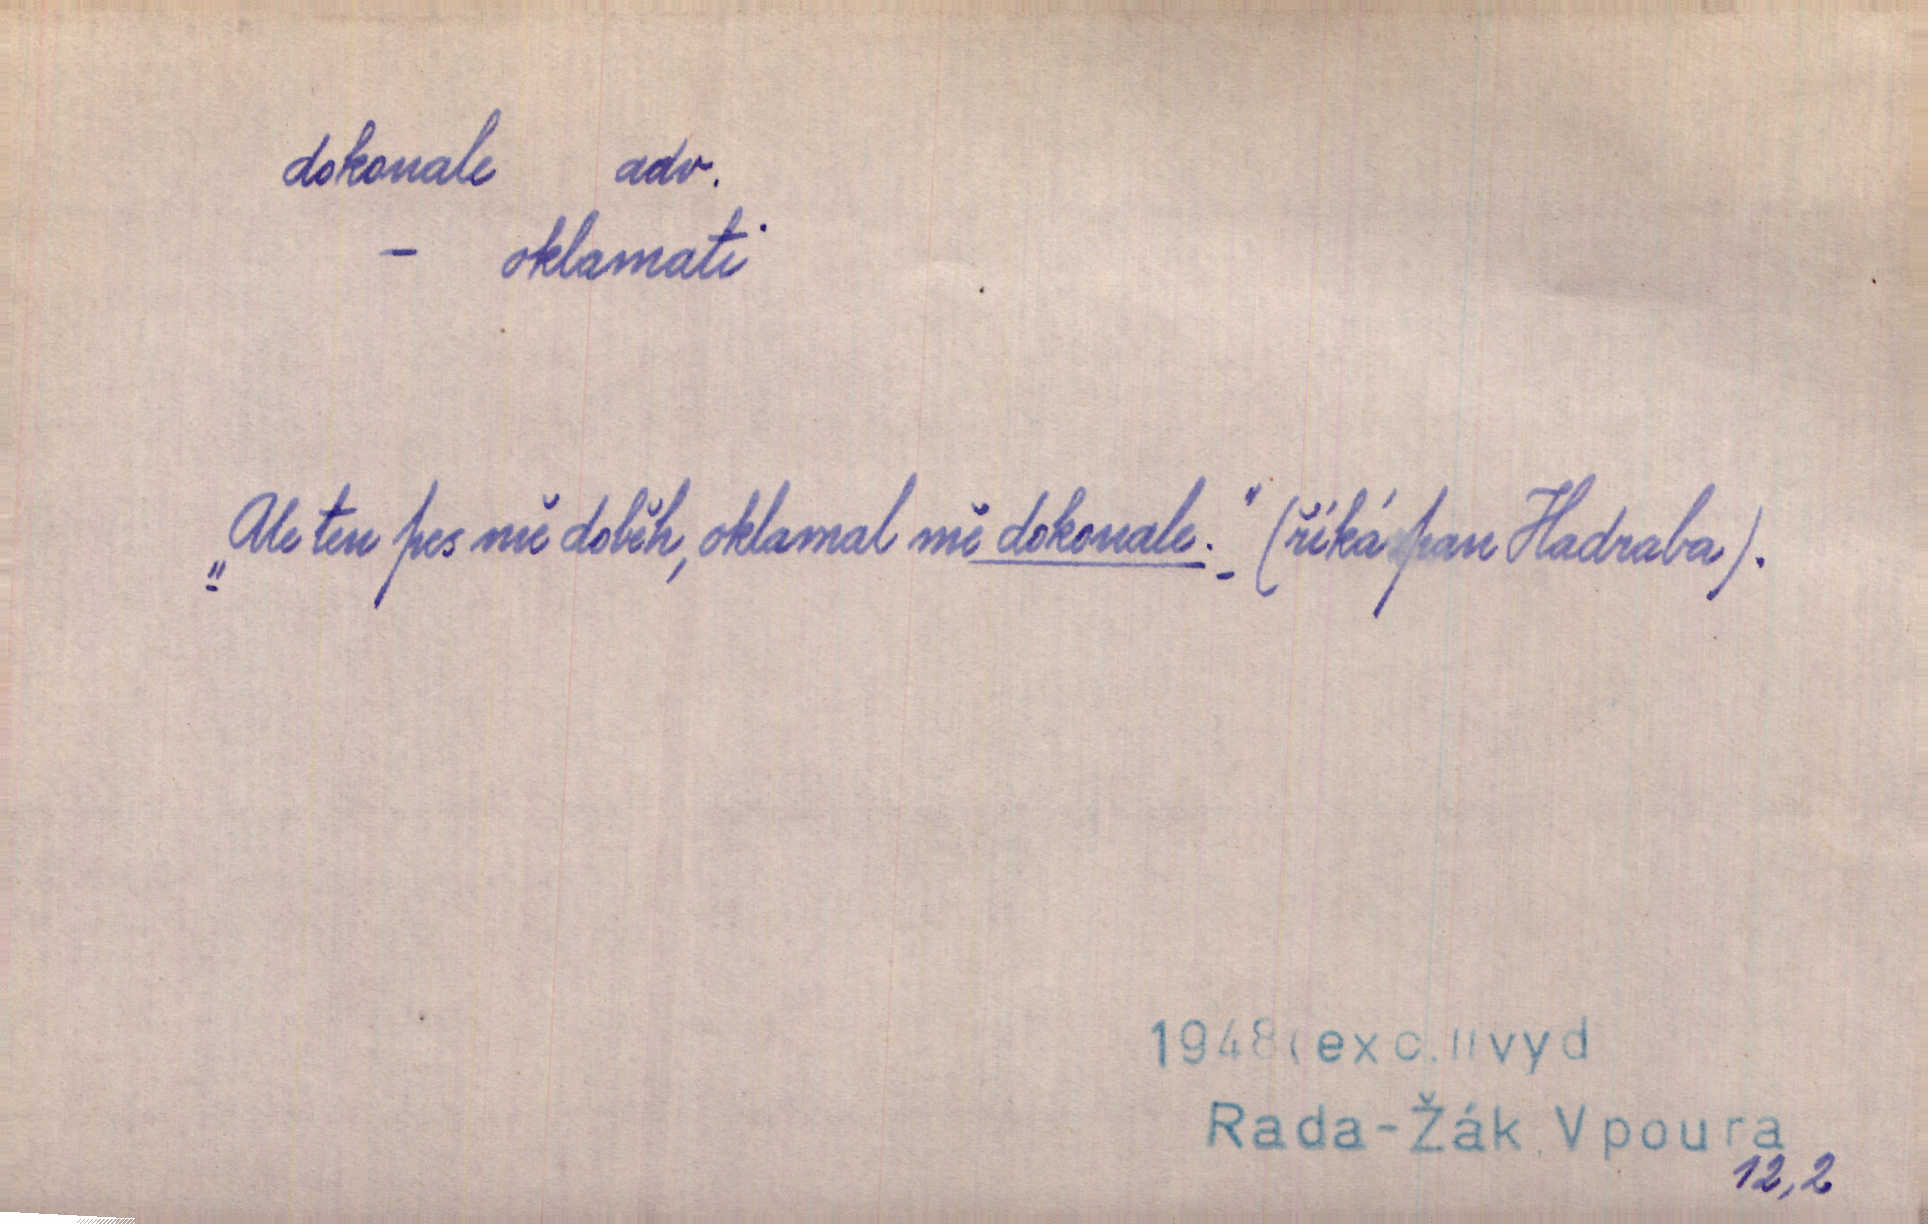 dokonale adv.
– oklamati
„Ale ten pes mě doběh, oklamal mě dokonale." (říká pan Hadraba).
1948 (exc. II vyd
Rada-Žák, Vpoura
12,2